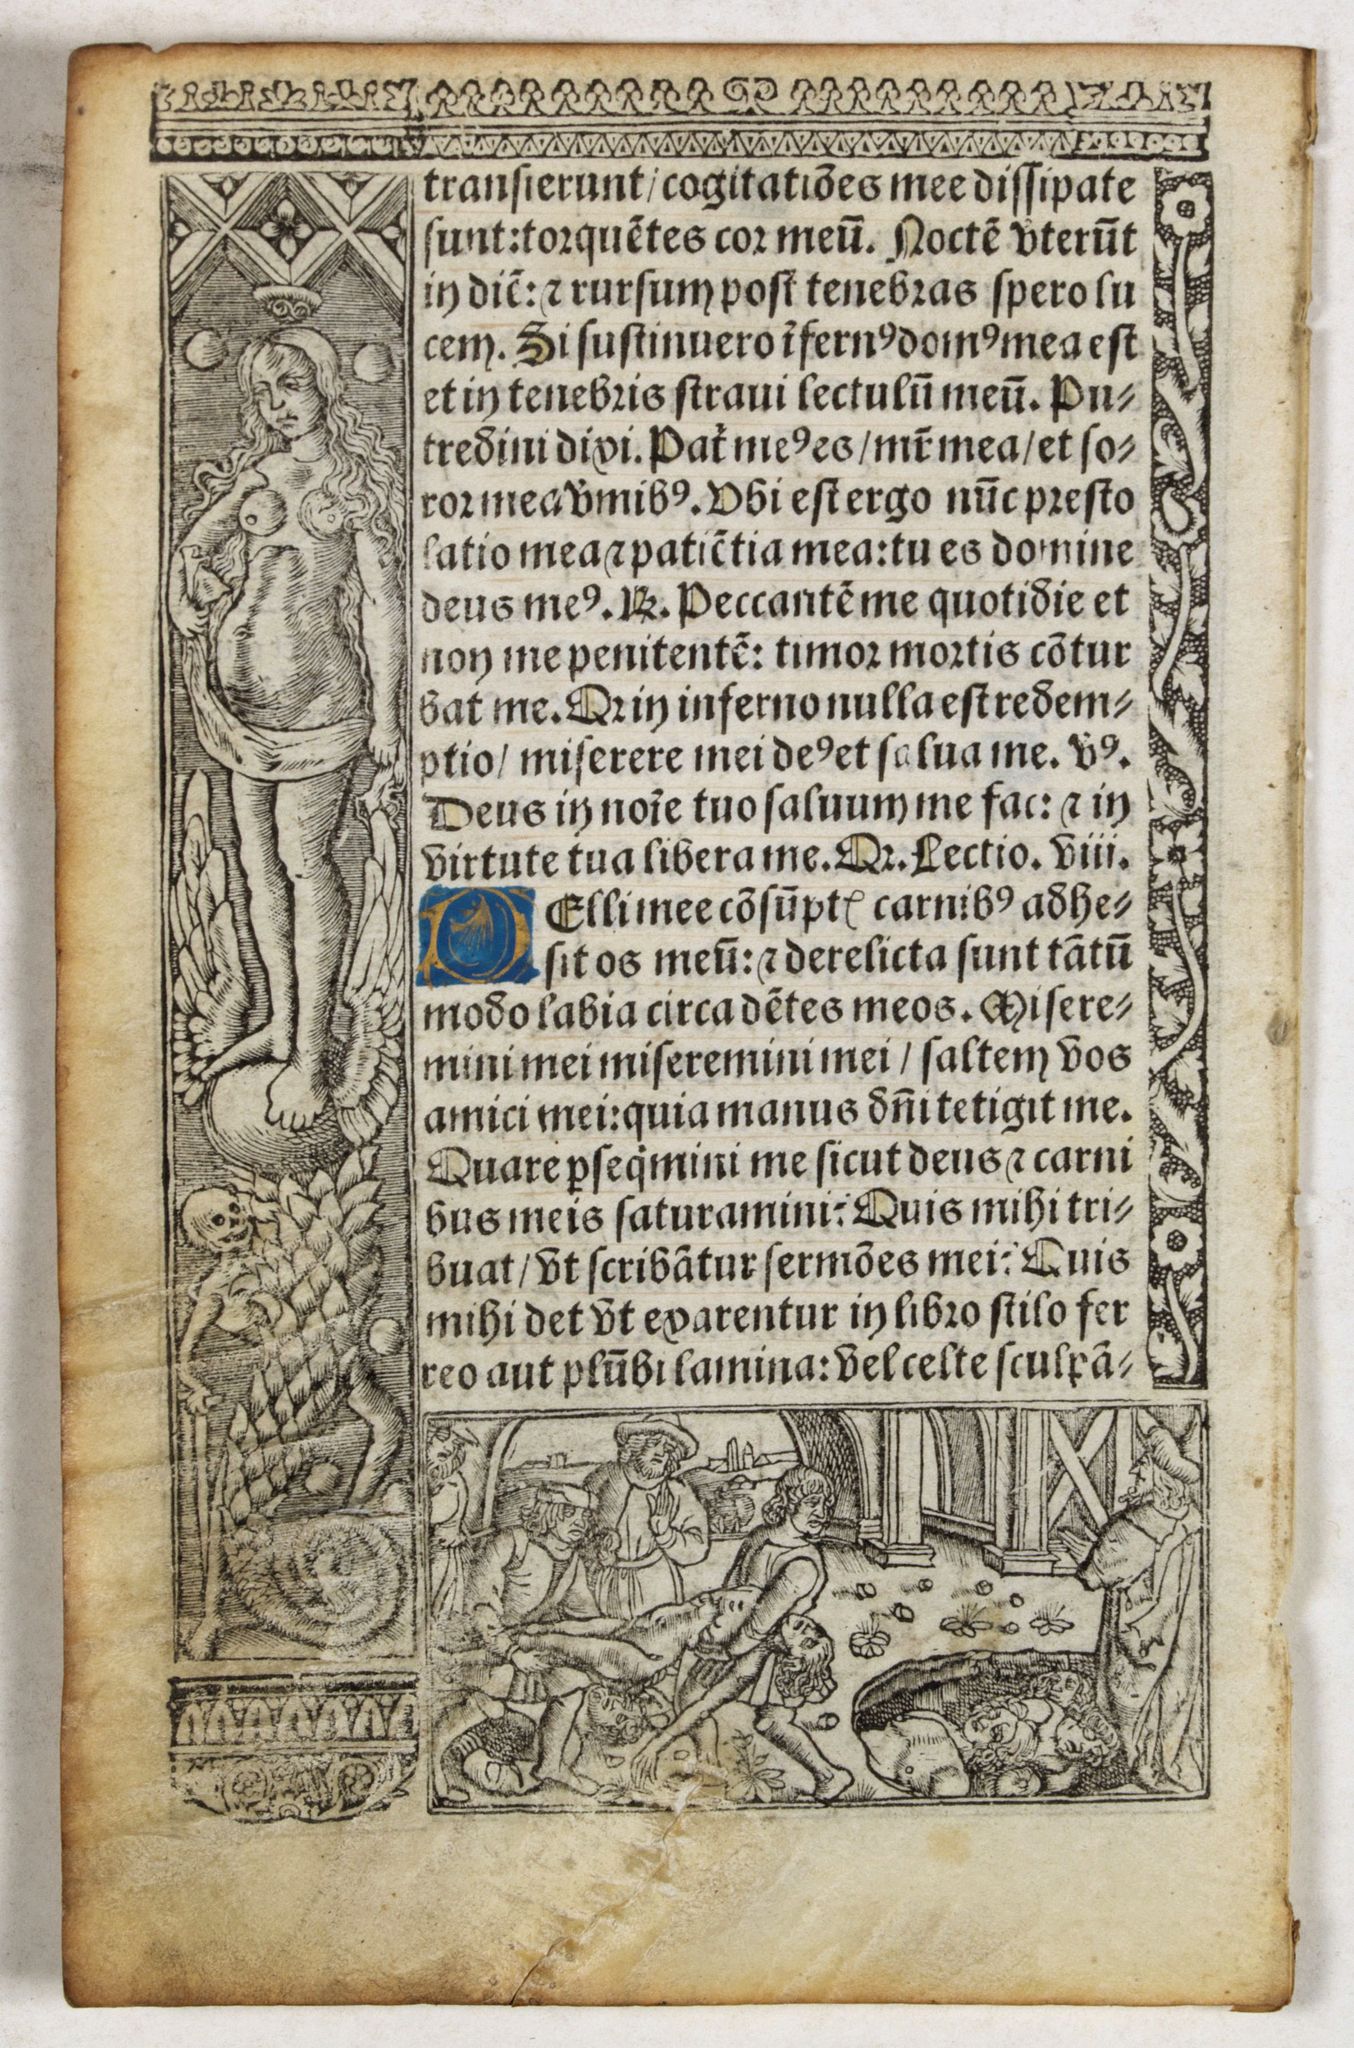 transierunt/cogitatiões mee dissipate
sunt:torquētes cor meū. Noctē v̄terūt
in diē: ⁊ rursum post tenebras spero lu
cem. Si sustinuero īfernꝰ domꝰ mea est
et in tenebris straui lectulū meū. Pu⸗
tredini dixi. Pat̄ meꝰ es/mr̄ mea/et so⸗
ror mea v̄mibꝰ. Vbi est ergo nūc presto
latio mea ⁊ patiētia mea:tu es domine
deus meꝰ. ℟. Peccantē me quotidie et
non me penitentē: timor mortis cōtur
bat me. Qr in inferno nulla est redem⸗
ptio/ miserere mei deꝰ et salua me. v̄ꝰ.
Deus in noīe tuo saluum me fac: ⁊ in
virtute tua libera me. Qr. Lectio. viii.
PElli mee cōsūptꝭ carnibꝰ adhe⸗
sit os meū: ⁊ derelicta sunt tātū
modo labia circa dētes meos. Misere⸗
mini mei miseremini mei / saltem vos
amici mei:quia manus dn̄i tetigit me.
Quare ꝑseq̇mini me sicut deus ⁊ carni
bus meis saturamini: Quis mihi tri⸗
buat/vt scribātur sermões mei: Quis
mihi det vt exarentur in libro stilo fer
reo aut plūbi lamina: vel celte sculpā⸗